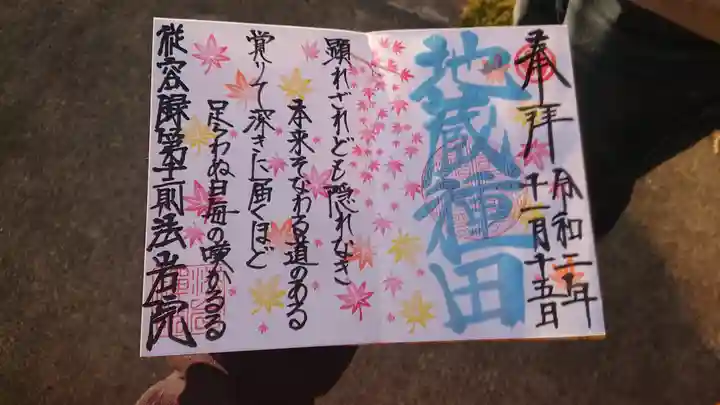 奉拝
令和二年
十一月十五日
地蔵種田
顕れざれども隠れなき
本来そなわる道のある
覚りて深きに届くほど
足らわぬ日毎の嘆かるる
従容録第十一則法岩院